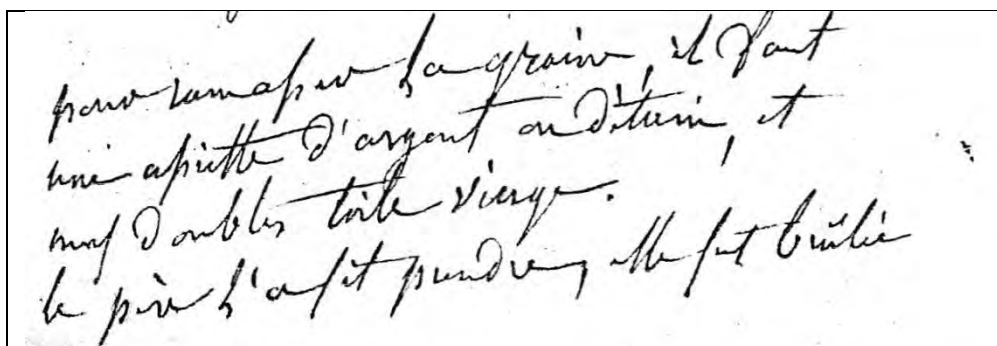 pour ramasser la graine, il faut
une assiette d'argent ou d'étain, et
neuf doubles toile vierge.
le père l'a fit prendre, elle fut brûlée